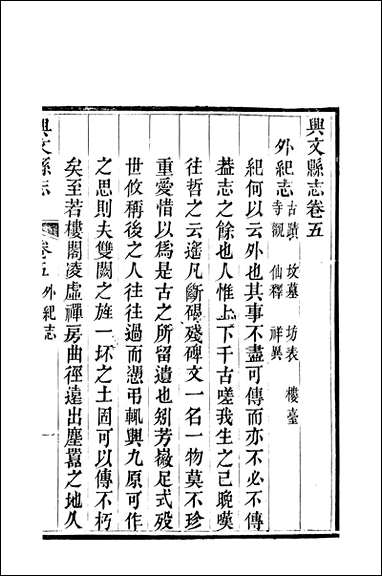 興文縣志卷五
外紀志 古蹟 故墓 坊表 樓臺
寺觀 仙釋 祥異
紀何以云外也其事不盡可傳而亦不必不傳
葢志之餘也人惟上下千古嗟我生之已晚嘆
往哲之云遙凡斷碣殘碑文一名一物莫不珍
重愛惜以爲是古之所留遺也矧芳徽足式殁
世攸稱後之人往往過而憑弔輒與九原可作
之思則夫雙闕之旌一坏之土固可以傳不朽
矣至若樓閣凌虛禪房曲徑遠出塵囂之地久
興文縣志 卷五 外紀志 一